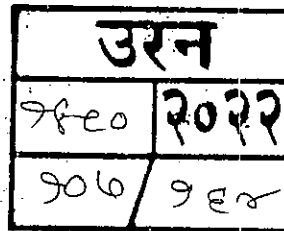 उरन
१४९० २०२२
१०७ / १६४